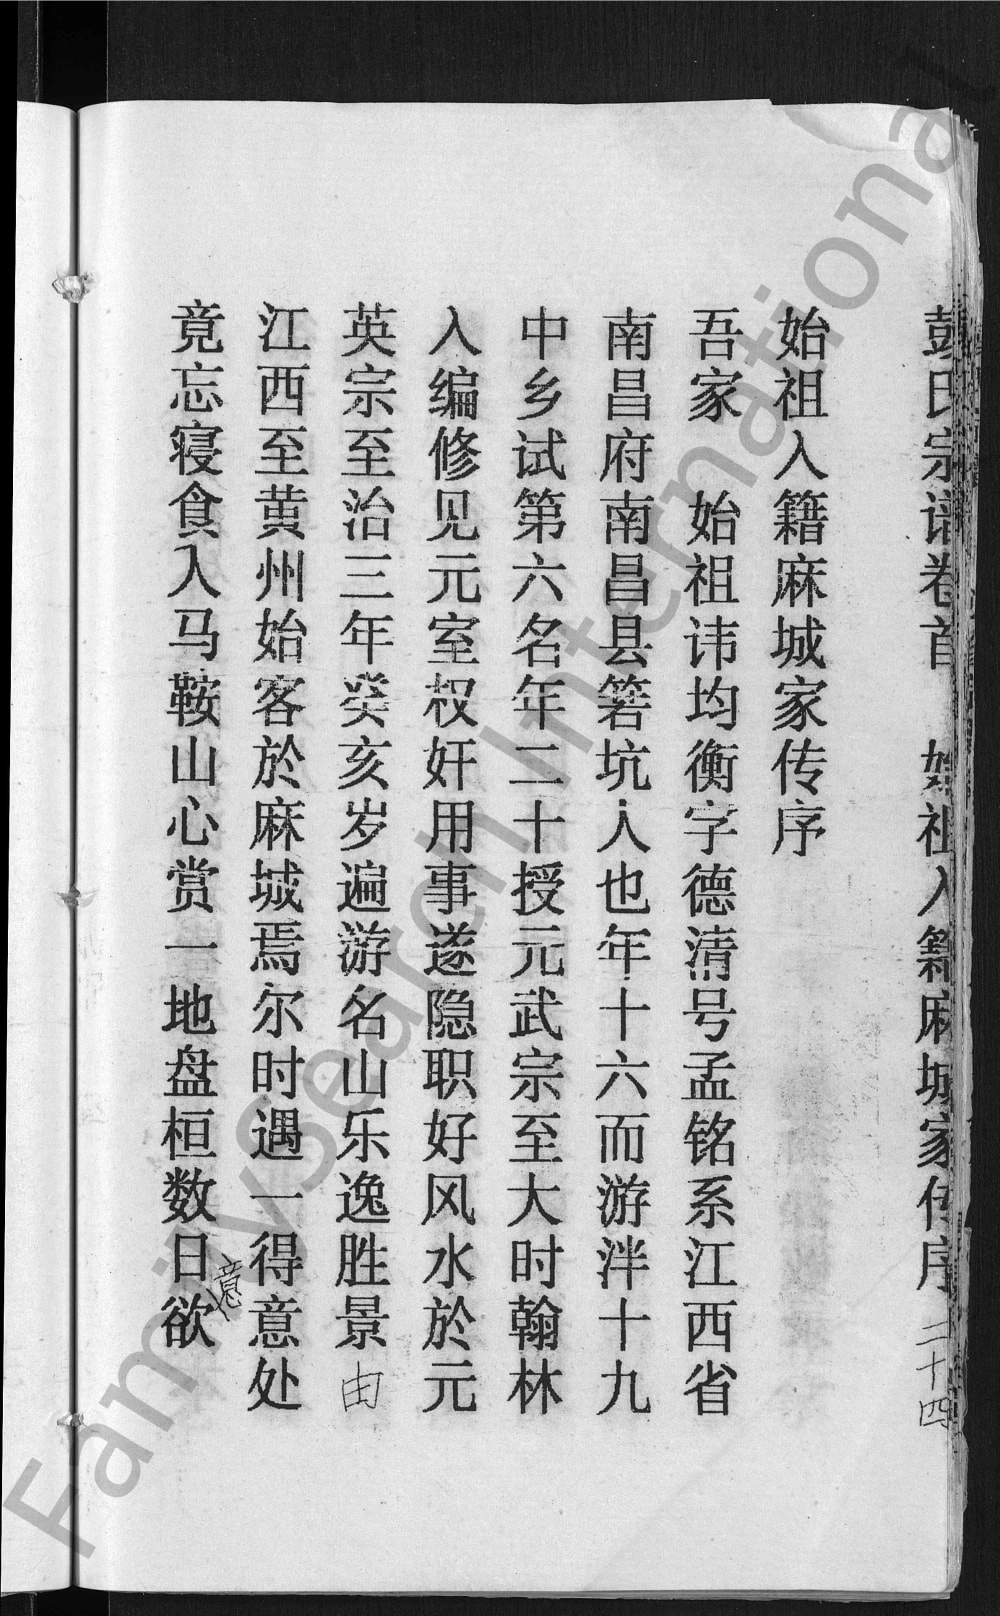 彭氏宗谱卷首 始祖入籍麻城家传序 二十四
始祖入籍麻城家传序
吾家 始祖讳均衡字德清号孟铭系江西省
南昌府南昌县箬坑人也年十六而游泮十九
中乡试第六名年二十授元武宗至大时翰林
入编修见元室权奸用事遂隐职好风水於元
英宗至治三年癸亥岁遍游名山乐逸胜景由
江西至黄州始客於麻城焉尔时遇一得意处
竟忘寝食入马鞍山心赏一地盘桓数日欲意
FamilySearch International